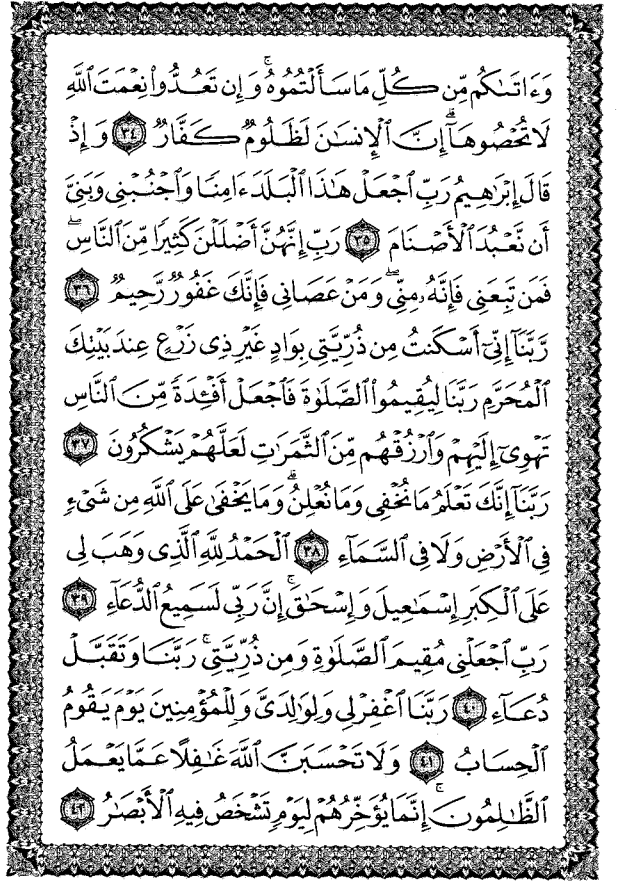 وَءَاتَىٰكُم مِّن كُلِّ مَا سَأَلْتُمُوهُ ۚ وَإِن تَعُدُّوا۟ نِعْمَتَ ٱللَّهِ
لَا تُحْصُوهَآ ۗ إِنَّ ٱلْإِنسَٰنَ لَظَلُومٌ كَفَّارٌ ٣٤ وَإِذْ
قَالَ إِبْرَٰهِيمُ رَبِّ ٱجْعَلْ هَٰذَا ٱلْبَلَدَ ءَامِنًا وَٱجْنُبْنِى وَبَنِىَّ
أَن نَّعْبُدَ ٱلْأَصْنَامَ ٣٥ رَبِّ إِنَّهُنَّ أَضْلَلْنَ كَثِيرًا مِّنَ ٱلنَّاسِ ۖ
فَمَن تَبِعَنِى فَإِنَّهُۥ مِنِّى ۖ وَمَنْ عَصَانِى فَإِنَّكَ غَفُورٌ رَّحِيمٌ ٣٦
رَّبَّنَآ إِنِّىٓ أَسْكَنتُ مِن ذُرِّيَّتِى بِوَادٍ غَيْرِ ذِى زَرْعٍ عِندَ بَيْتِكَ
ٱلْمُحَرَّمِ رَبَّنَا لِيُقِيمُوا۟ ٱلصَّلَوٰةَ فَٱجْعَلْ أَفْـِٔدَةً مِّنَ ٱلنَّاسِ
تَهْوِىٓ إِلَيْهِمْ وَٱرْزُقْهُم مِّنَ ٱلثَّمَرَٰتِ لَعَلَّهُمْ يَشْكُرُونَ ٣٧
رَبَّنَآ إِنَّكَ تَعْلَمُ مَا نُخْفِى وَمَا نُعْلِنُ ۗ وَمَا يَخْفَىٰ عَلَى ٱللَّهِ مِن شَىْءٍ
فِى ٱلْأَرْضِ وَلَا فِى ٱلسَّمَآءِ ٣٨ ٱلْحَمْدُ لِلَّهِ ٱلَّذِى وَهَبَ لِى
عَلَى ٱلْكِبَرِ إِسْمَٰعِيلَ وَإِسْحَٰقَ ۚ إِنَّ رَبِّى لَسَمِيعُ ٱلدُّعَآءِ ٣٩
رَبِّ ٱجْعَلْنِى مُقِيمَ ٱلصَّلَوٰةِ وَمِن ذُرِّيَّتِى ۚ رَبَّنَا وَتَقَبَّلْ
دُعَآءِ ٤٠ رَبَّنَا ٱغْفِرْ لِى وَلِوَٰلِدَىَّ وَلِلْمُؤْمِنِينَ يَوْمَ يَقُومُ
ٱلْحِسَابُ ٤١ وَلَا تَحْسَبَنَّ ٱللَّهَ غَٰفِلًا عَمَّا يَعْمَلُ
ٱلظَّٰلِمُونَ ۚ إِنَّمَا يُؤَخِّرُهُمْ لِيَوْمٍ تَشْخَصُ فِيهِ ٱلْأَبْصَٰرُ ٤٢